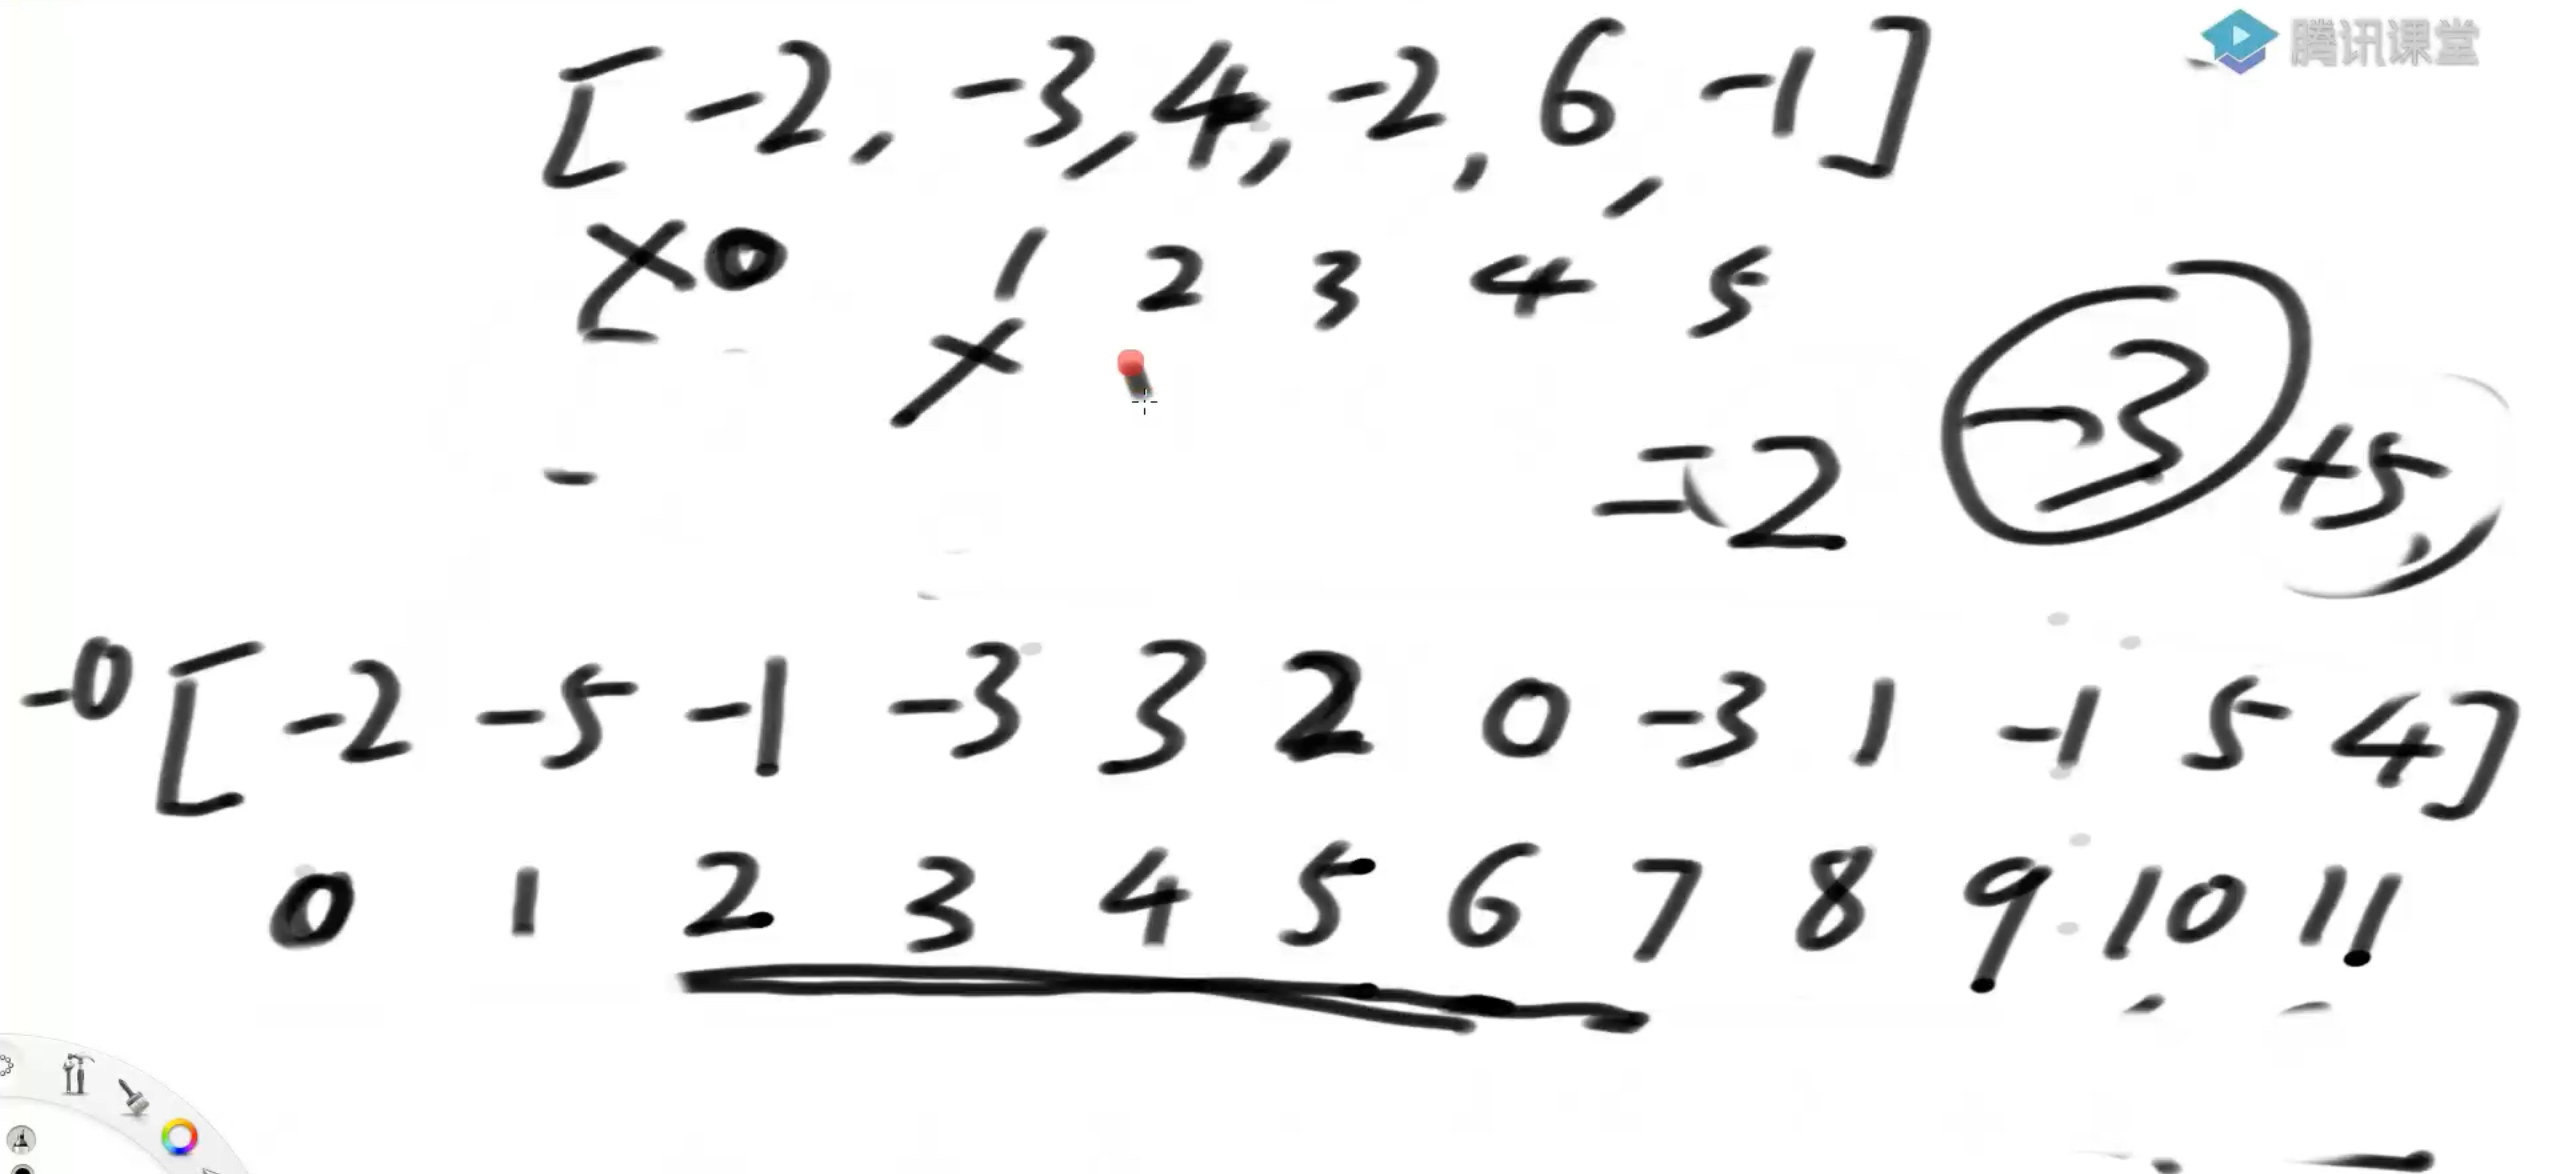 腾讯课堂
[-2, -3, 4, -2, 6, -1]
0 1 2 3 4 5
=2 -3 +5
-0 [-2 -5 -1 -3 3 2 0 -3 1 -1 5 4]
0 1 2 3 4 5 6 7 8 9 10 11